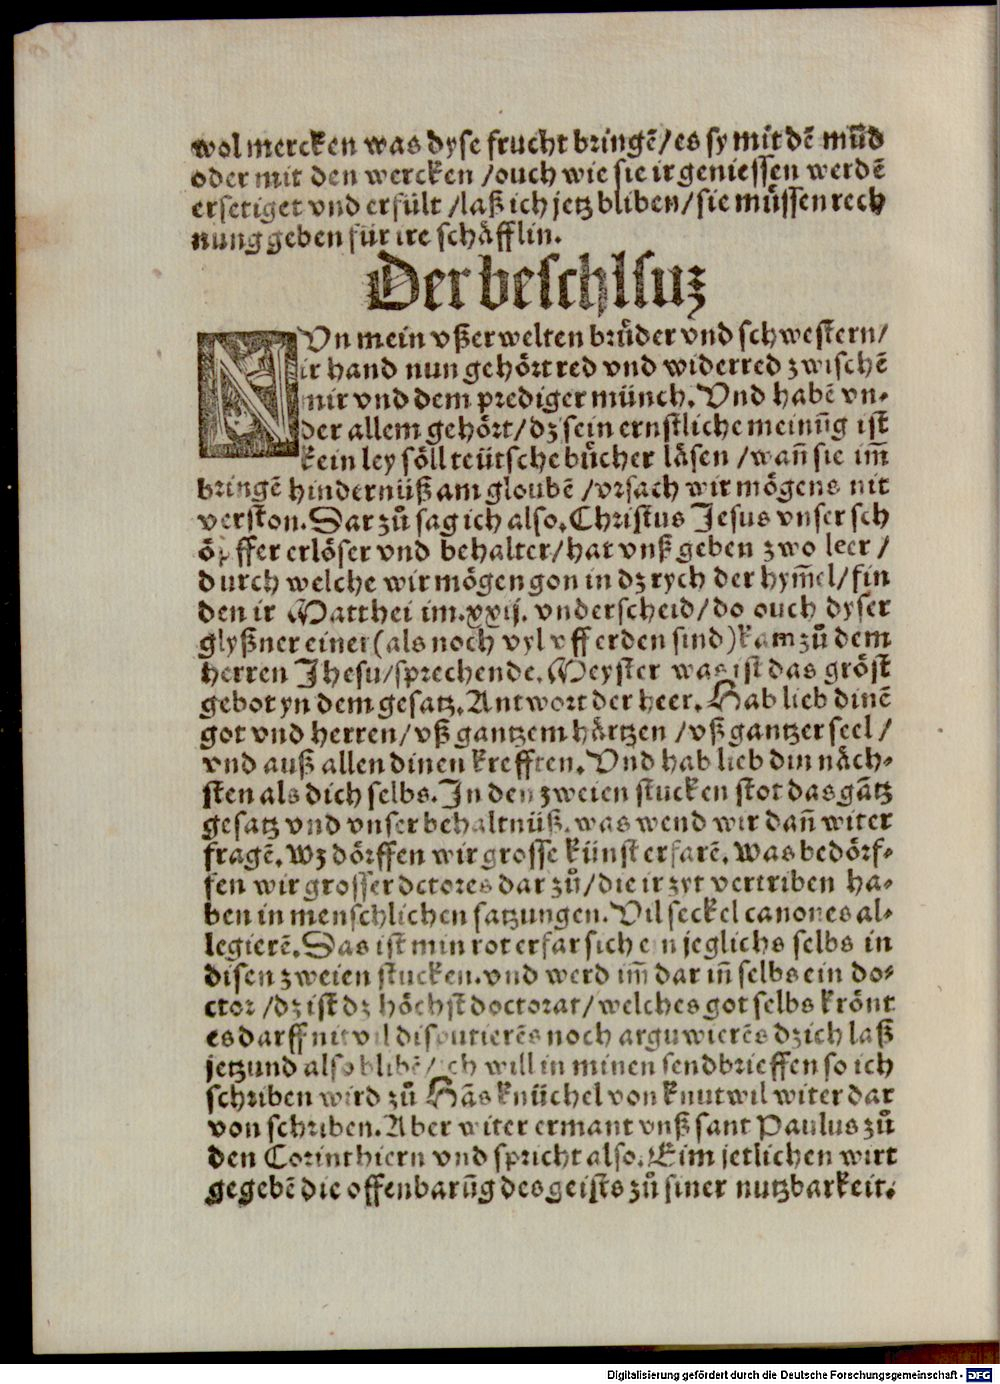 wol mercken was dyse frucht bringẽ/es sy mit dẽ mũd
oder mit den wercken /ouch wie sie ir geniessen werdẽ
ersetiget vnd erfült /laß ich jetz bliben/sie müssen rech
nung geben für ire schäfflin.
Der beschlsuz
NVn mein vßerwelten brüder vnd schwestern/
ir hand nun gehört red vnd widerred zwischẽ
mir vnd dem prediger münch. Vnd habẽ vn-
der allem gehört/dz sein ernstliche meinũg ist
kein ley söll teütsche bücher läsen /wañ sie im̃
bringẽ hindernüß am gloubẽ /vrsach wir mögens nit
verston. Dar zů sag ich also. Christus Jesus vnser sch
öpffer erlöser vnd behalter/hat vnß geben zwo leer /
durch welche wir mögen gon in dz rych der hym̃el/fin
den ir Matthei im.xxij. vnderscheid/do ouch dyser
glyßner einer(als noch vyl vff erden sind)kam zů dem
herren Jhesu/sprechende. Meyster was ist das gröst
gebot yn dem gesatz. Antwort der heer. Hab lieb dinẽ
got vnd herren/vß gantzem härtzen /vß gantzer seel /
vnd auß allen dinen krefften. Vnd hab lieb din näch-
sten als dich selbs. In den zweien stucken stot das gãtz
gesatz vnd vnser behaltnüß. was wend wir dañ witer
fragẽ. Wz dörffen wir grosse künst erfarẽ. Was bedörf-
fen wir grosser dctores dar zů/die ir zyt vertriben ha-
ben in menschlichen satzungen. Vil seckel canones al-
legierẽ. Das ist min rot erfar sich ein jeglichs selbs in
disen zweien stucken. vnd werd im̃ dar iñ selbs ein do-
ctor /dz ist dz höchst doctorat/welches got selbs krönt
es darff nit vil disputierẽs noch arguwierẽs dz ich laß
jetzund also blibẽ/ich will in minen sendbrieffen so ich
schriben wird zů Hãs knüchel von knutwil witer dar
von schriben. Aber witer ermant vnß sant Paulus zů
den Corinthiern vnd spricht also. Eim jetlichen wirt
gegebẽ die offenbarũg des geists zů siner nutzbarkeit.
Digitalisierung gefördert durch die Deutsche Forschungsgemeinschaft - DFG